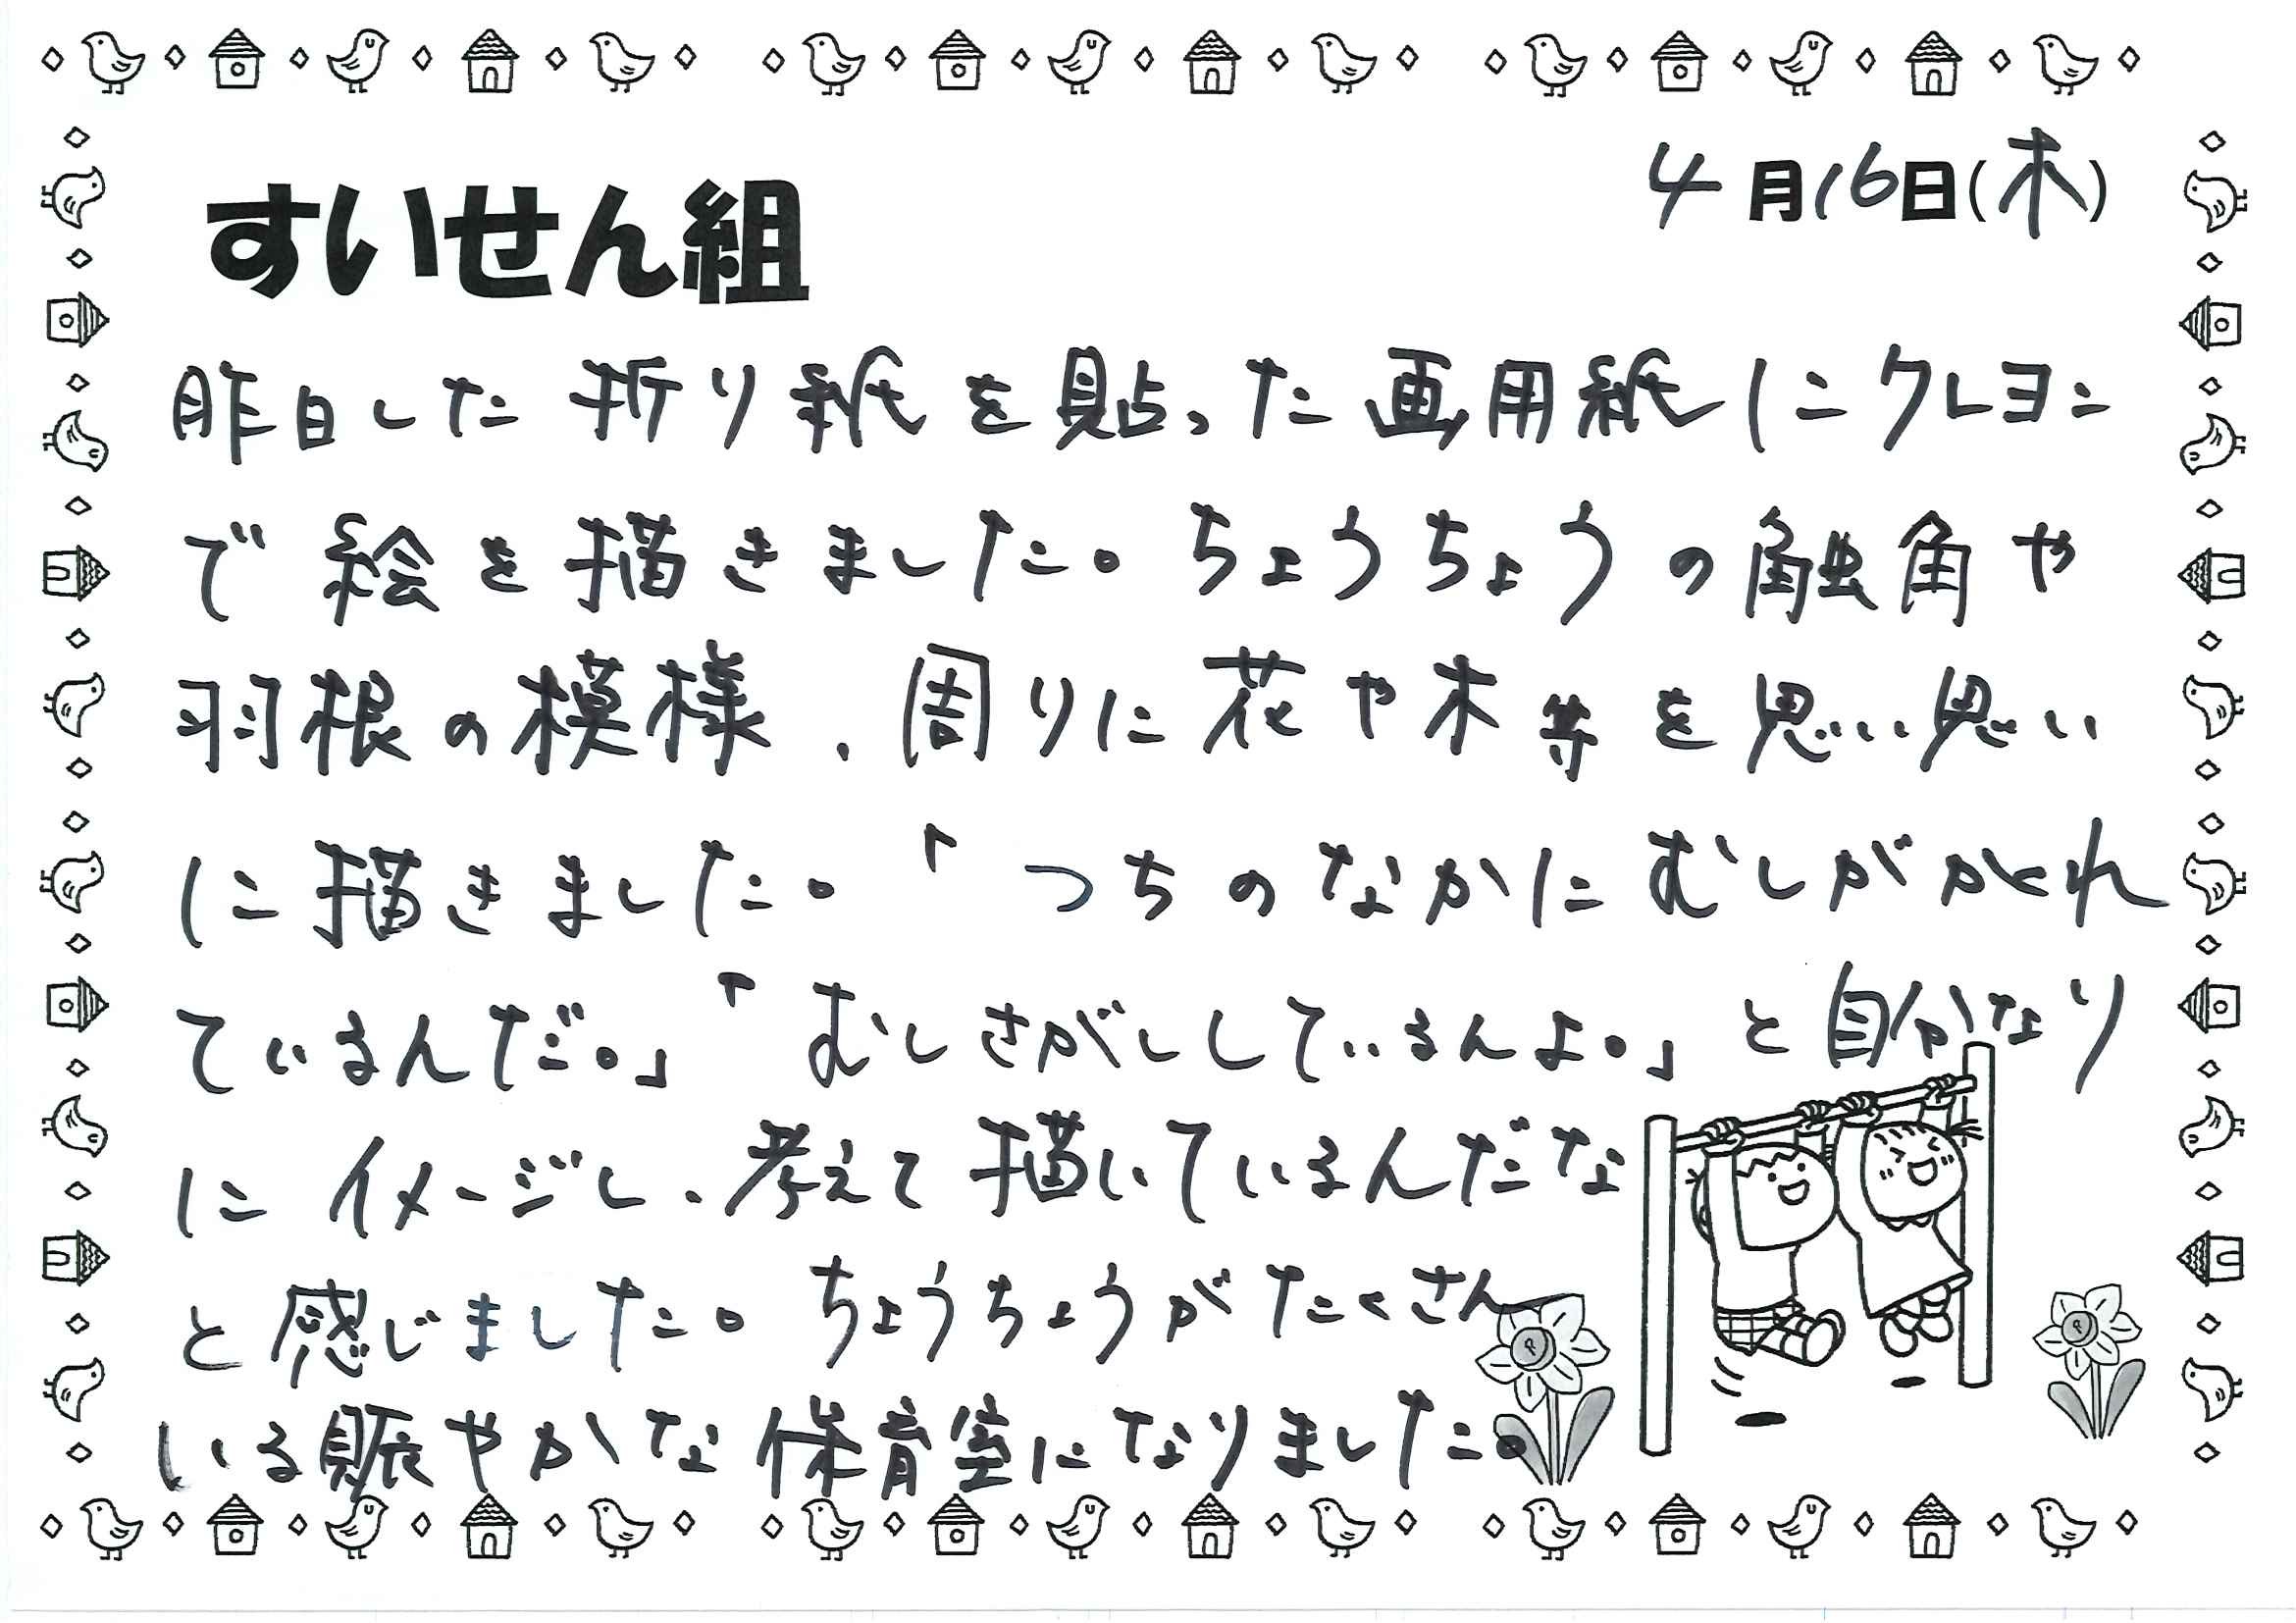 4月16日(木)
すいせん組
昨日した折り紙を貼った画用紙にクレヨン
で絵を描きました。ちょうちょうの触角や
羽根の模様、周りに花や木等を思い思い
に描きました。「つちのなかにむしがかくれ
ているんだ。」「むしさがししているんよ。」と自分なり
にイメージし、考えて描いているんだな
と感じました。ちょうちょうがたくさん
いる賑やかな保育室になりました。